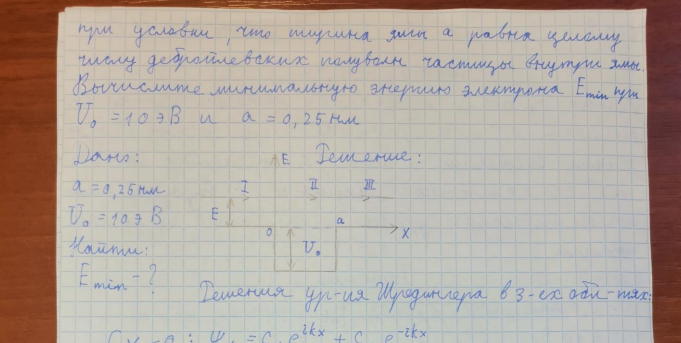 при условии, что ширина ямы a равна целому
числу дебройлевских полуволн частицы внутри ямы.
Вычислите минимальную энергию электрона E min при
U₀ = 10 эВ и a = 0,25 нм
Дано:
E
Решение:
a = 0,25 нм
I
II
III
U₀ = 10 эВ
E
0
a
x
U₀
Найти:
E min - ?
Решения ур-ия Шредингера в 3-ех обл-тях: